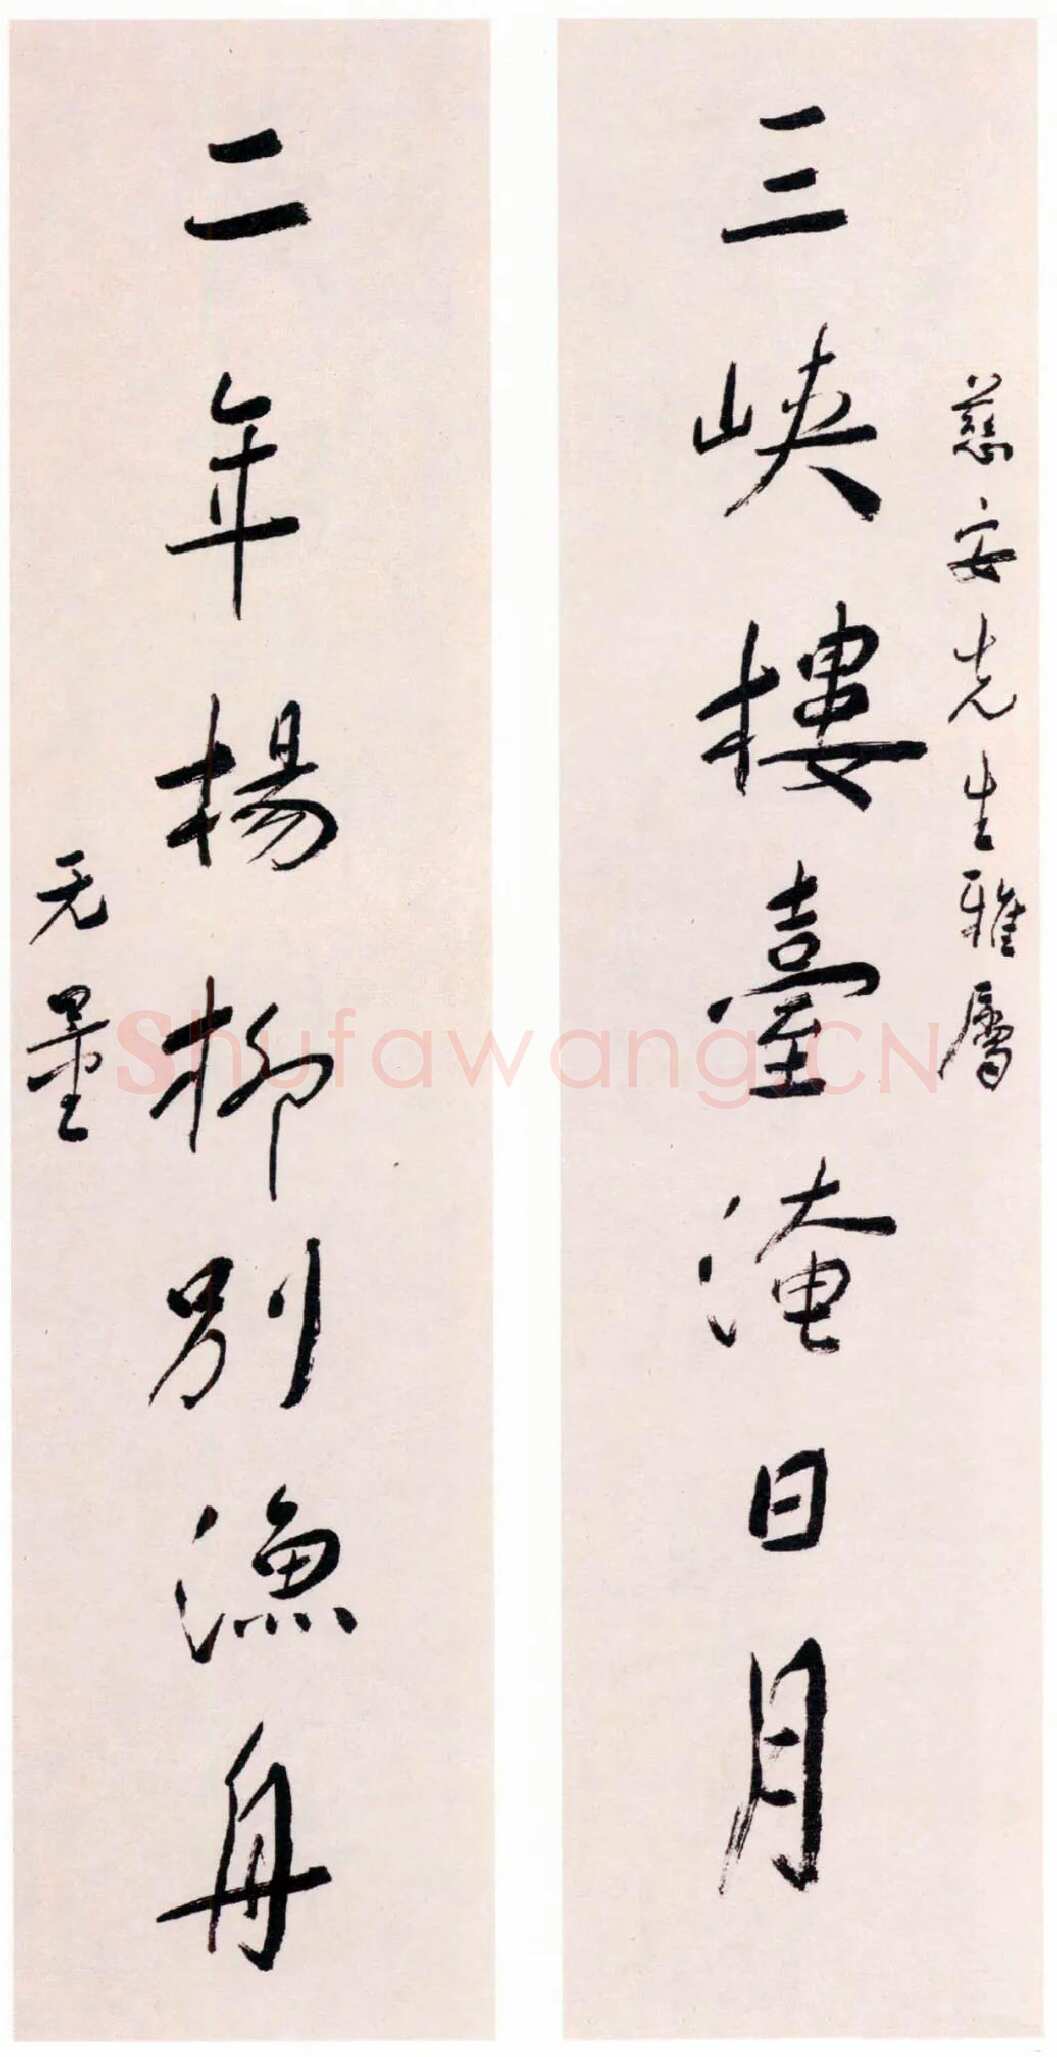 慈安先生雅屬
三峡樓臺淹日月
二年楊柳別漁舟
无量
Shufawang.CN